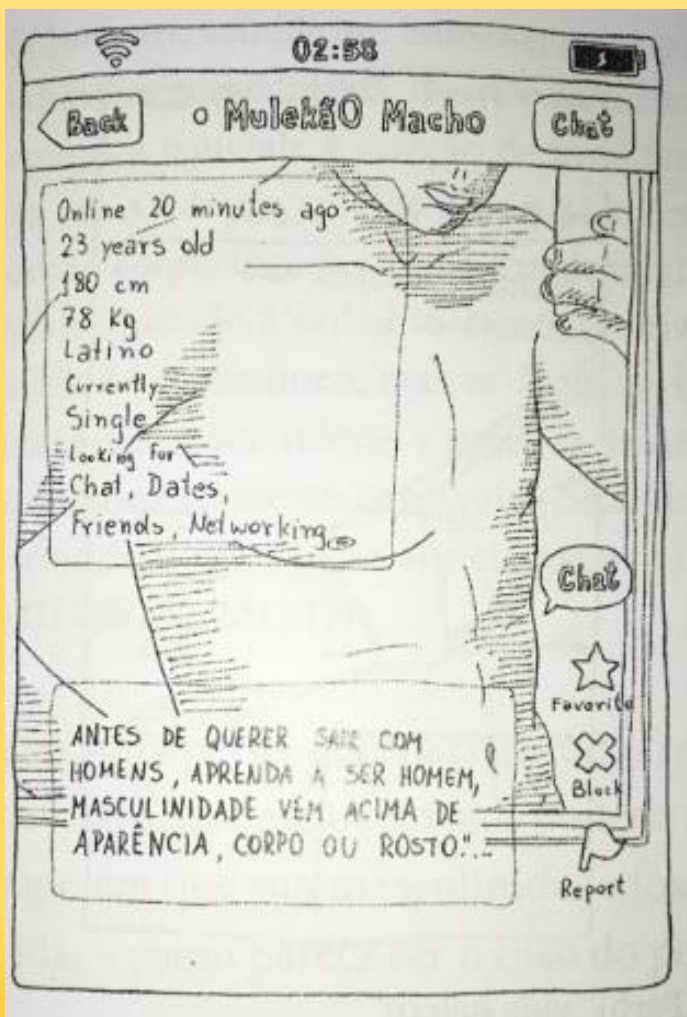 02:58
Back
o MulekãO Macho
Chat
Online 20 minutes ago
23 years old
180 cm
78 Kg
Latino
Currently
Single
Looking for
Chat, Dates,
Friends, Networking
Chat
Favorite
Block
Report
ANTES DE QUERER SAIR COM
HOMENS, APRENDA A SER HOMEM,
MASCULINIDADE VEM ACIMA DE
APARÊNCIA, CORPO OU ROSTO."...